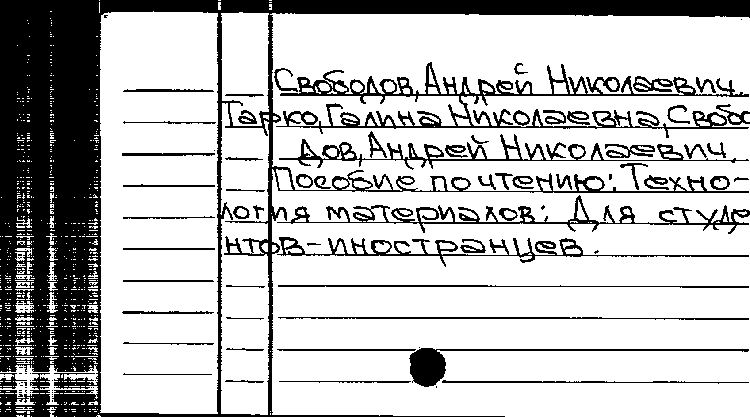 Свободов, Андрей Николаевич.
Тарко, Галина Николаевна, Свобо
дов, Андрей Николаевич.
Пособие по чтению: Техно-
логия материалов: Для студе
нтов-иностранцев.